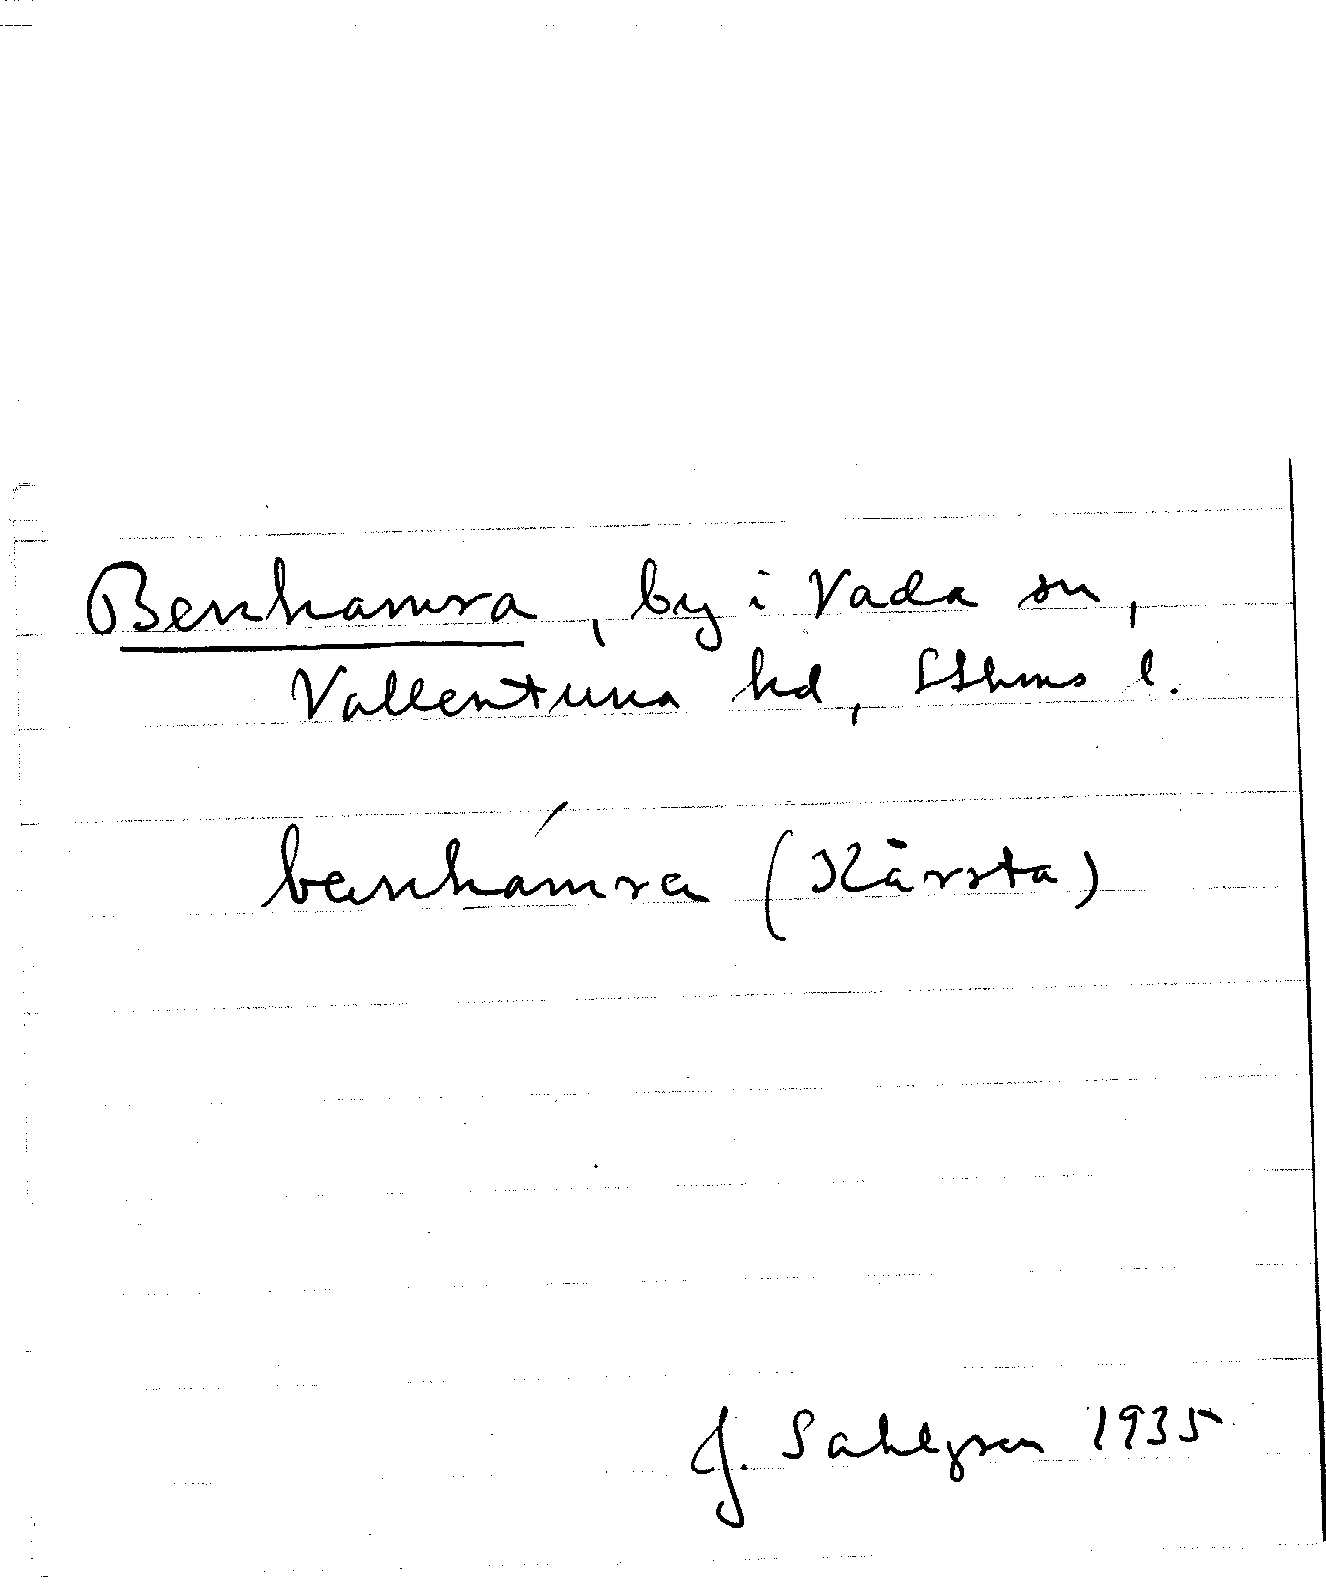 Benhamra, by i Vada sn,
Vallentuna hd, Sthms l.
benhámra (Kårsta)
J. Sahlgren 1935